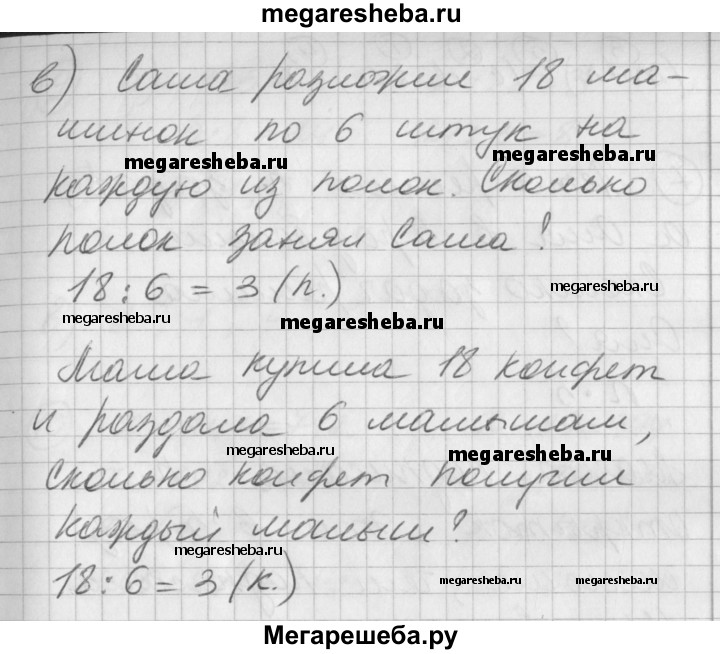 megaresheba.ru
в) Саша разложил 18 ма-
шинок по 6 штук на
megaresheba.ru
megaresheba.ru
каждую из полок. Сколько
полок занял Саша!
18:6=3(п.)
megaresheba.ru
megaresheba.ru
megaresheba.ru
Маша купила 18 конфет
и раздала 6 малышам,
megaresheba.ru
megaresheba.ru
сколько конфет получил
каждый малыш?
megaresheba.ru
18:6=3(к.)
megaresheba.ru
megaresheba.ru
Мегарешеба.ру